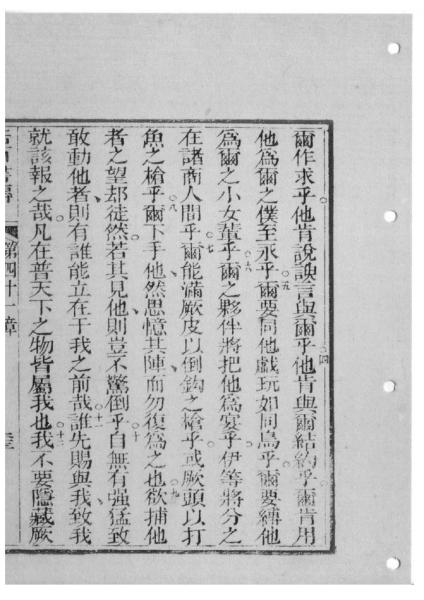 爾作求乎他肯說諛言與爾乎他肯與爾結約乎爾肯用
他爲爾之僕至永乎爾要同他戲玩如同鳥乎爾要縛他
爲爾之小女輩乎爾之夥伴將把他爲宴乎伊等將分之
在諸商人間乎爾能滿厥皮以倒鈎之槍乎或厥頭以打
魚之槍乎爾下手他然思憶其陣而勿復爲之也欲捕他
者之望却徒然若其見他則豈不驚倒乎自無有强猛致
敢動他者則有誰能立在于我之前哉誰先賜與我致我
就該報之哉凡在普天下之物皆屬我也我不要隱藏厥
第四十一章